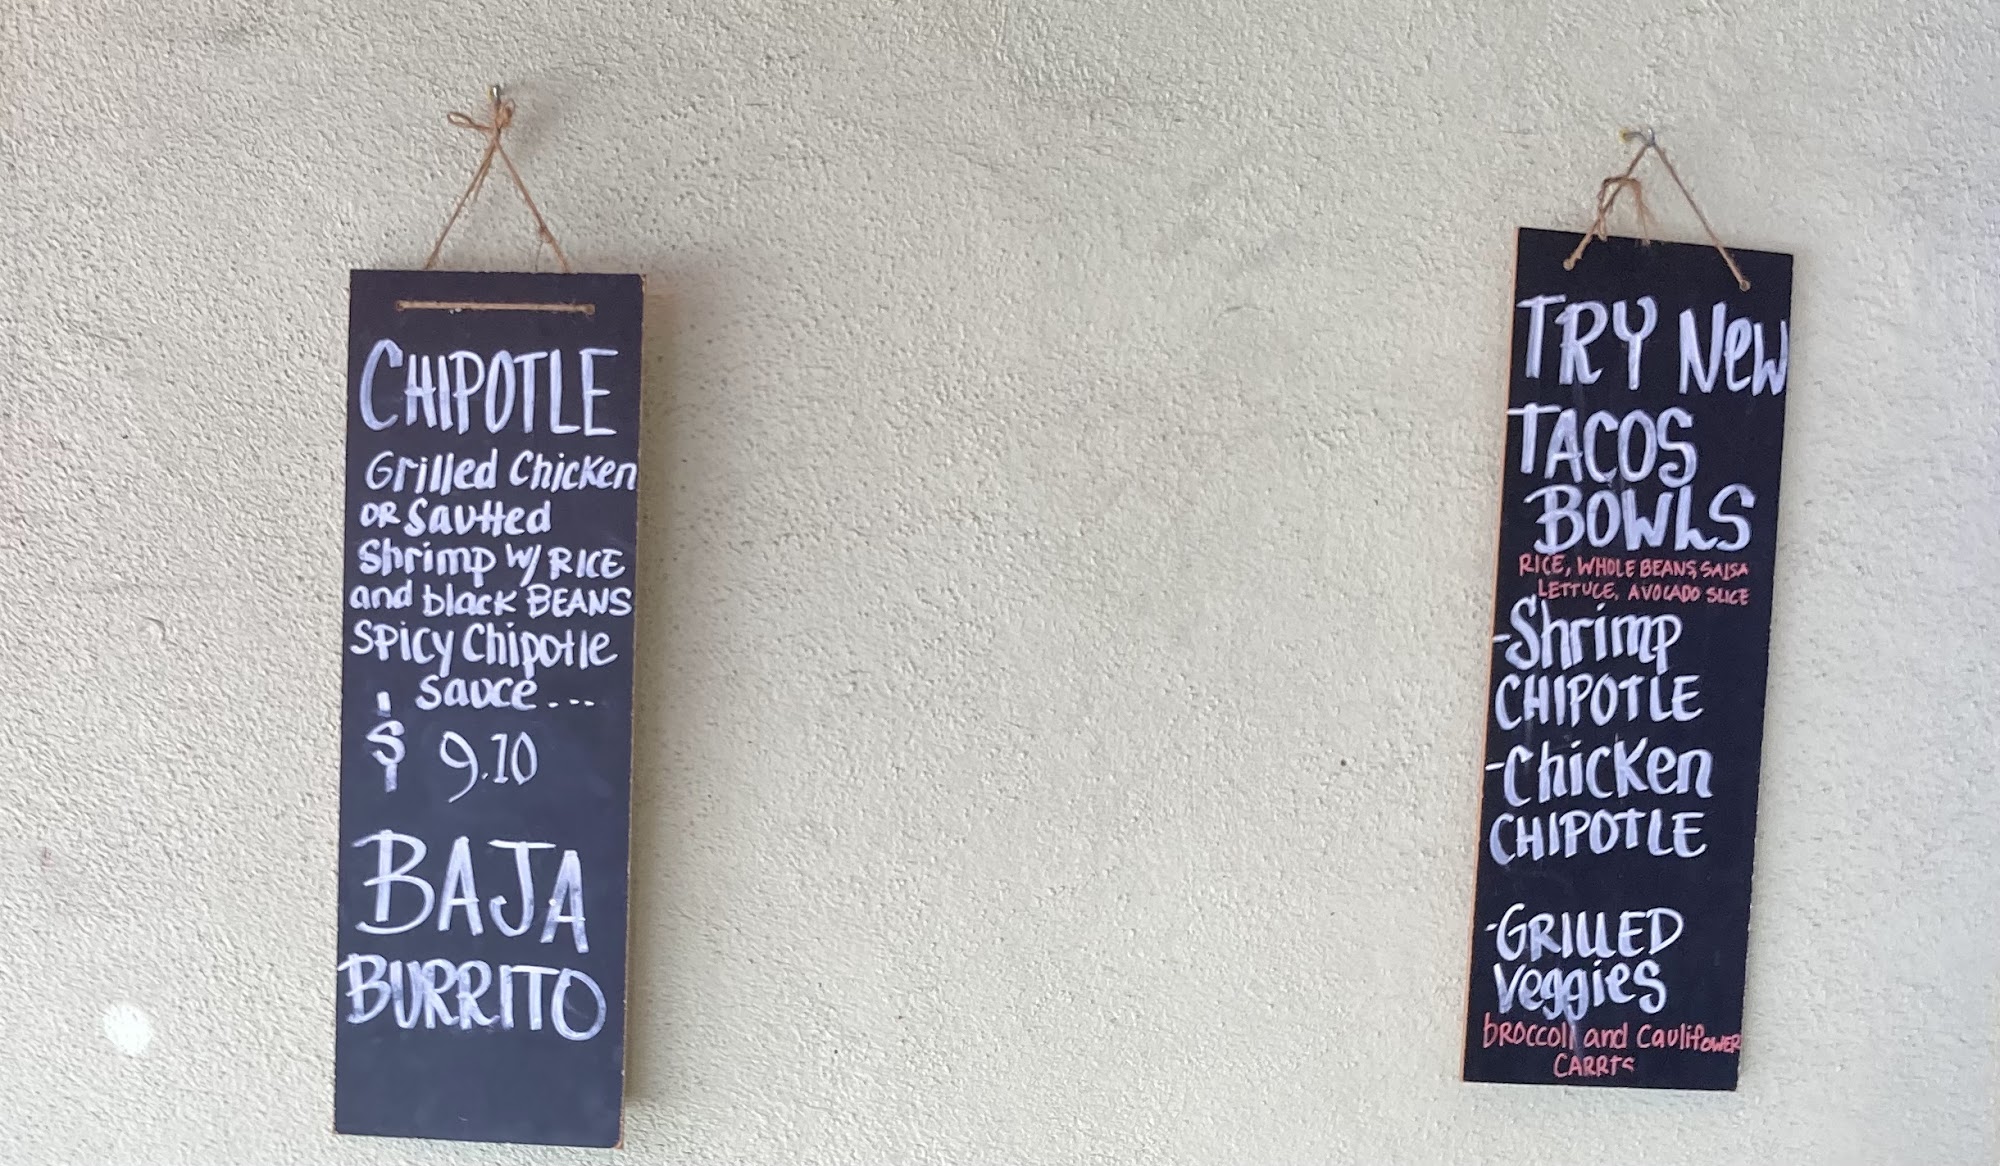 CHIPOTLE
Grilled Chicken
OR Sautted
Shrimp W/ RICE
and black BEANS
SPICY Chipotle
sauce...
$ 9.10
BAJA
BURRITO
TRY New
TACOS
BOWLS
RICE, WHOLE BEANS, SALSA
LETTUCE, AVOCADO SLICE
-Shrimp
CHIPOTLE
-Chicken
CHIPOTLE
-GRILLED
Veggies
bROCCOli and CauliflOWER
CARRTS